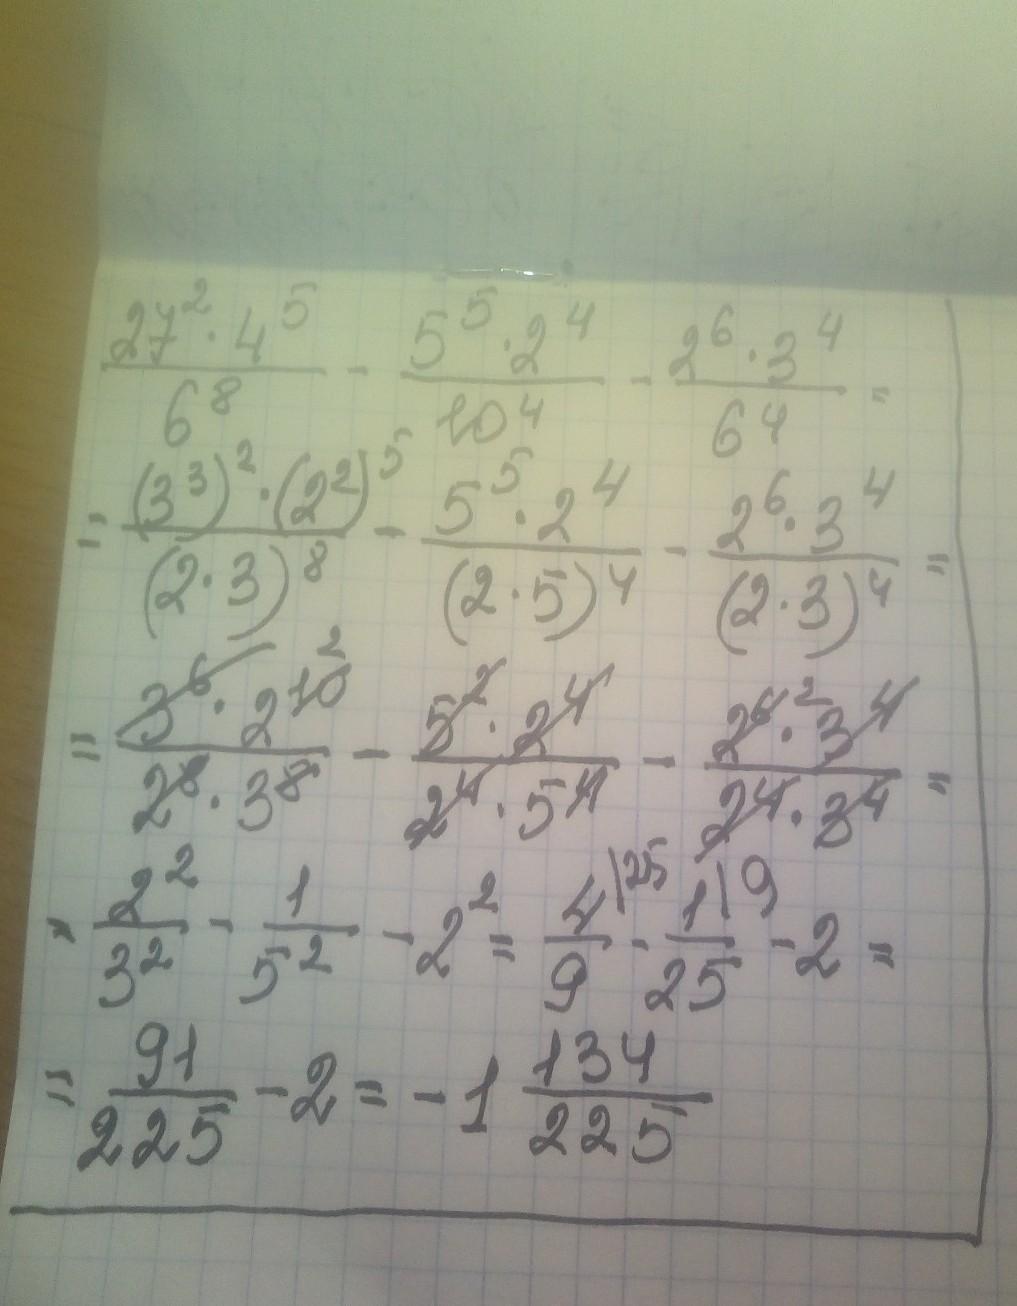 27² · 4⁵ / 6⁸ - 5⁵ · 2⁴ / 10⁴ - 2⁶ · 3⁴ / 6⁴ =
= (3³)² · (2²)⁵ / (2 · 3)⁸ - 5⁵ · 2⁴ / (2 · 5)⁴ - 2⁶ · 3⁴ / (2 · 3)⁴ =
= 3⁶ · 2¹⁰ ² / 2⁸ · 3⁸ - 5² · 2⁴ / 2⁴ · 5⁴ - 2⁶ ² · 3⁴ / 2⁴ · 3⁴ =
= 2² / 3² - 1 / 5² - 2² = 4 |25 / 9 - 1 |9 / 25 - 2 =
= 91 / 225 - 2 = -1 134 / 225